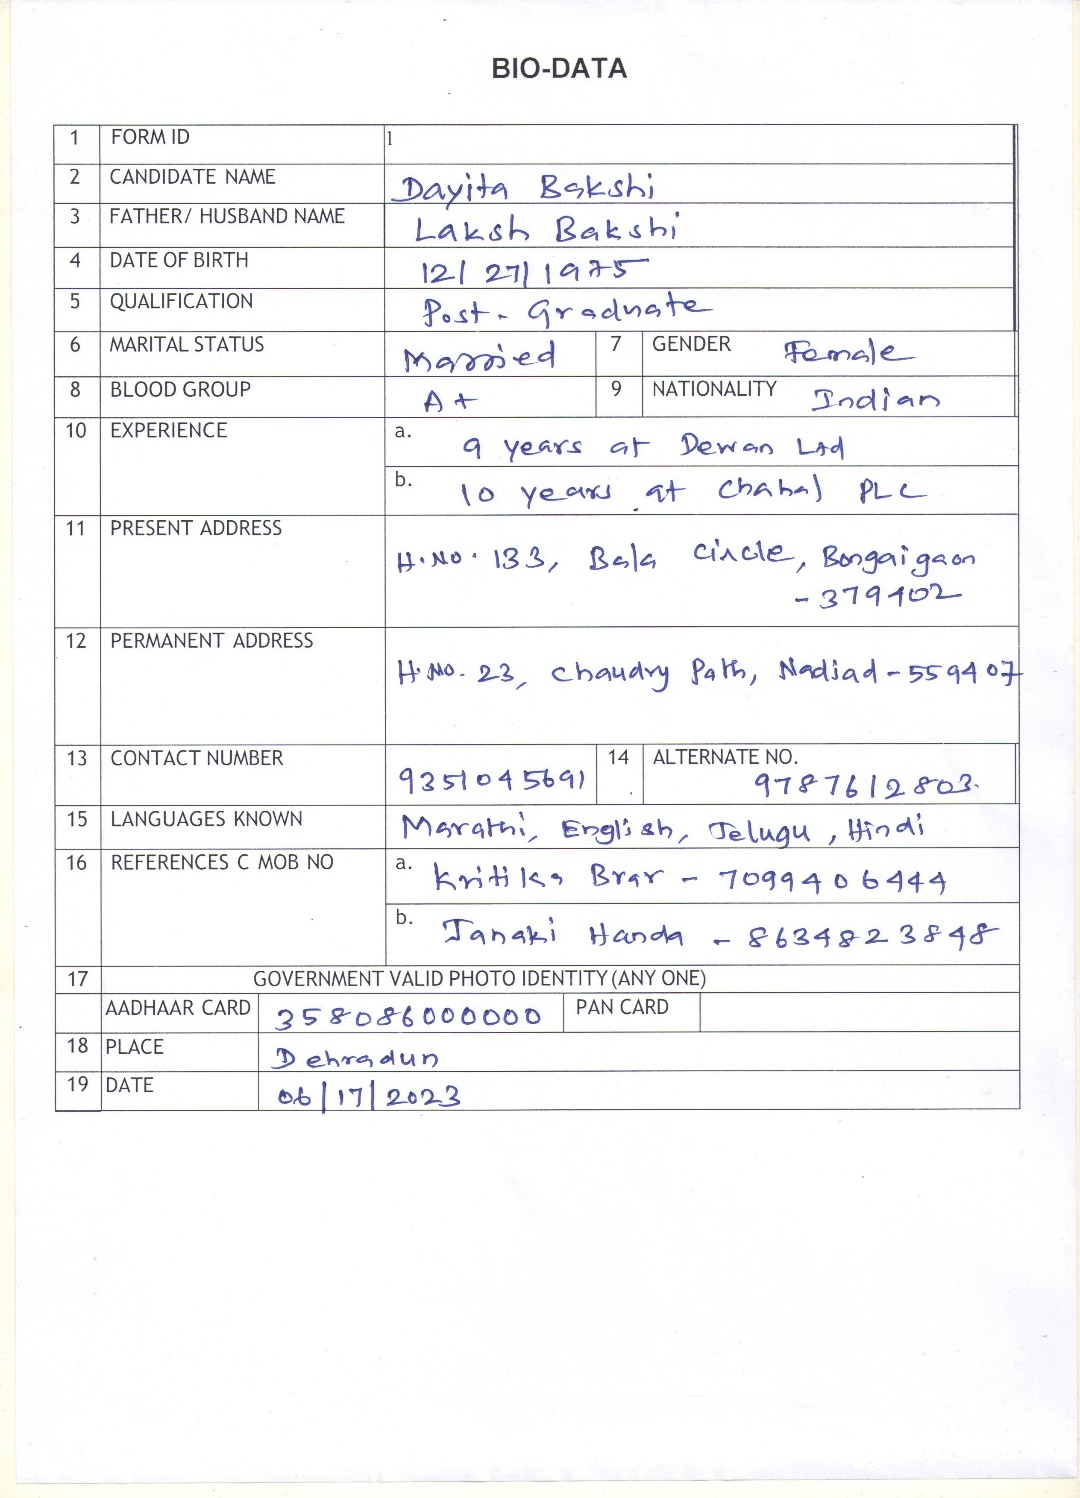 BIO-DATA
1 FORM ID 1
2 CANDIDATE NAME Dayita Bakshi
3 FATHER/ HUSBAND NAME Laksh Bakshi
4 DATE OF BIRTH 12/27/1975
5 QUALIFICATION Post-Graduate
6 MARITAL STATUS Married 7 GENDER Female
8 BLOOD GROUP A+ 9 NATIONALITY Indian
10 EXPERIENCE a. 9 years at Dewan Ltd
b. 10 years at Chahal PLC
11 PRESENT ADDRESS
H.No. 133, Bala Circle, Bongaigaon
- 379402
12 PERMANENT ADDRESS
H.No. 23, Chaudry Path, Nadiad - 559407
13 CONTACT NUMBER 9351045691 14 ALTERNATE NO. 9787612803.
15 LANGUAGES KNOWN Marathi, English, Telugu, Hindi
16 REFERENCES C MOB NO a. Kritika Brar - 7099406444
b. Janaki Handa - 8634823848
17 GOVERNMENT VALID PHOTO IDENTITY (ANY ONE)
AADHAAR CARD 358086000000 PAN CARD
18 PLACE Dehradun
19 DATE 06/17/2023